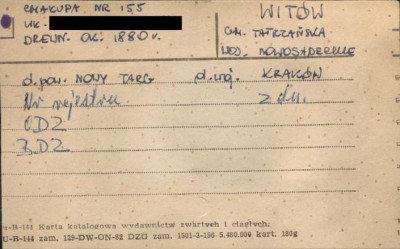 CHAŁUPA NR 155
WŁ.
DREWN. OK. 1880 r.
WITÓW
GM. TATRZAŃSKA
WOJ. NOWOSĄDECKIE
d. pow. NOWY TARG d. woj. KRAKÓW
Nr rejestru z dn.
ODZ
BDZ
u-II-144 Karta katalogowa wydawnictw zwartych i ciągłych:
U-II-144 zam. 129-DW-ON-82 DZG zam. 1501-3-196 5.480.000 kart. 180g